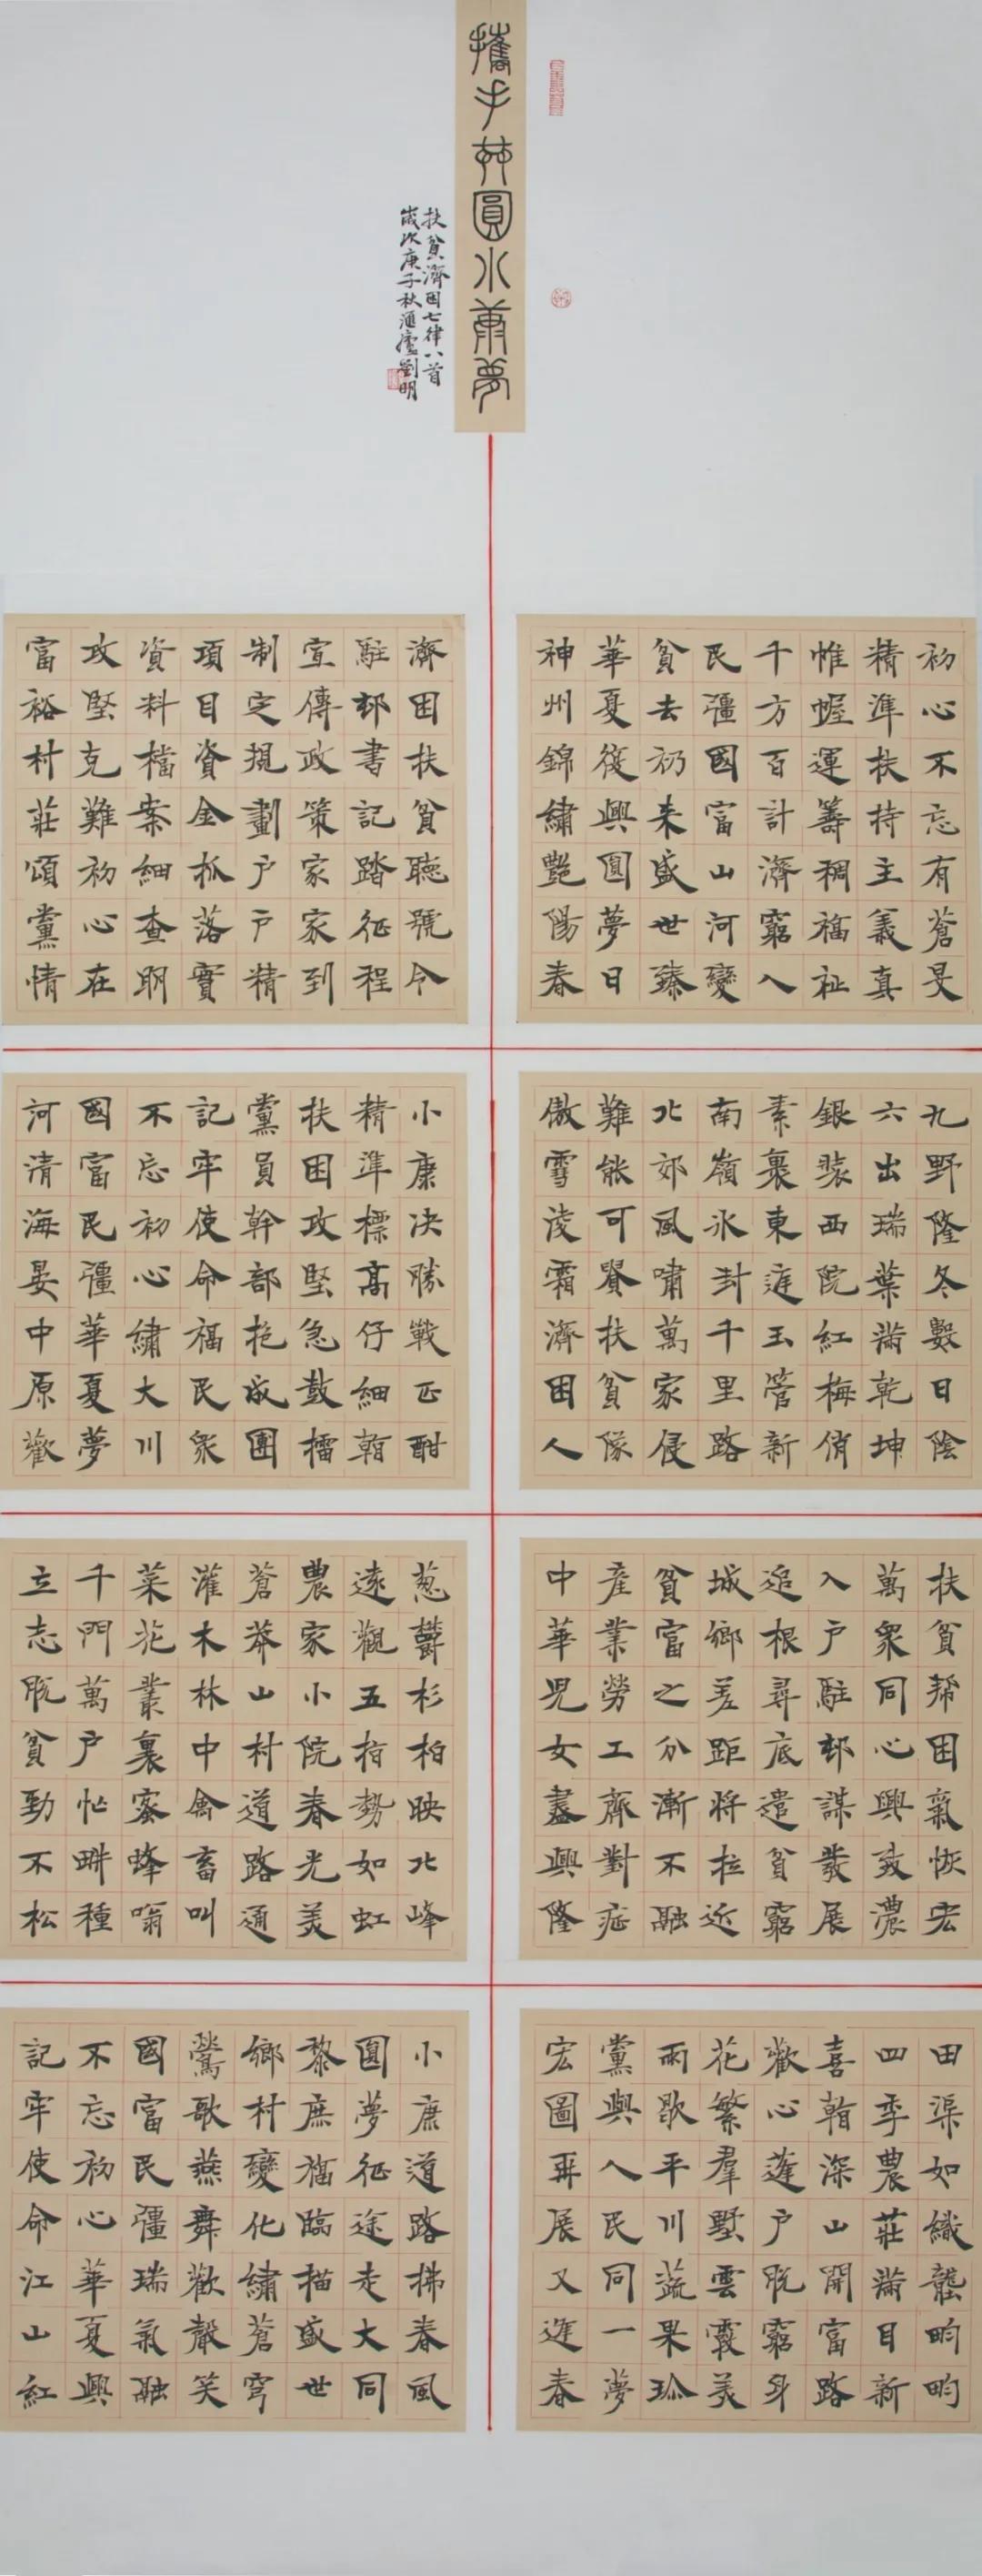 攜手共圓小康夢
扶貧濟困七律八首
歲次庚子秋滙廬劉明
初心不忘有蒼旻
精準扶持主義真
帷幄運籌稠福祉
千方百計濟窮人
民彊國富山河變
貧去礽来盛世臻
華夏復興圓夢日
神州錦繡艷陽春
濟困扶貧聽號令
駐邨書記踏征程
宣傳政策家家到
制定規劃户户精
項目資金抓落實
資料檔案細查明
攻堅克難初心在
富裕村莊頌黨情
九野隆冬數日陰
六出瑞葉滿乾坤
銀裝西院紅梅俏
素裹東庭玉管新
南嶺氷封千里路
北郊風嘯萬家侵
難能可賢扶貧隊
傲雪淩霜濟困人
小康决勝戰正酣
精準標高仔細翰
扶困攻堅急鼓擂
黨員幹部抱成團
記牢使命福民衆
不忘初心繡大川
國富民彊華夏夢
河清海晏中原歡
扶貧幫困氣恢宏
萬衆同心興致濃
入户駐邨謀發展
追根尋底遣貧窮
城鄉差距將拉近
貧富之分漸不融
産業勞工齊對症
中華児女盡興隆
葱鬱杉柏映北峰
遠觀五指勢如虹
農家小院春光美
蒼莽山村道路通
灌木林中禽畜叫
菜花叢裏蜜蜂嗡
千門萬户忙畊種
立志脱貧勁不松
田渠如織壟畇畇
四季農莊滿目新
喜翰深山開富路
歡心蓬户脱窮身
花繁羣墅雲霞美
雨歇平川蔬果珎
黨與人民同一夢
宏圖再展又進春
小康道路拂春風
圓夢征途走大同
黎庶福臨描盛世
鄉村變化繡蒼穹
鶯歌燕舞歡聲笑
國富民彊瑞氣融
不忘初心華夏興
記牢使命江山紅